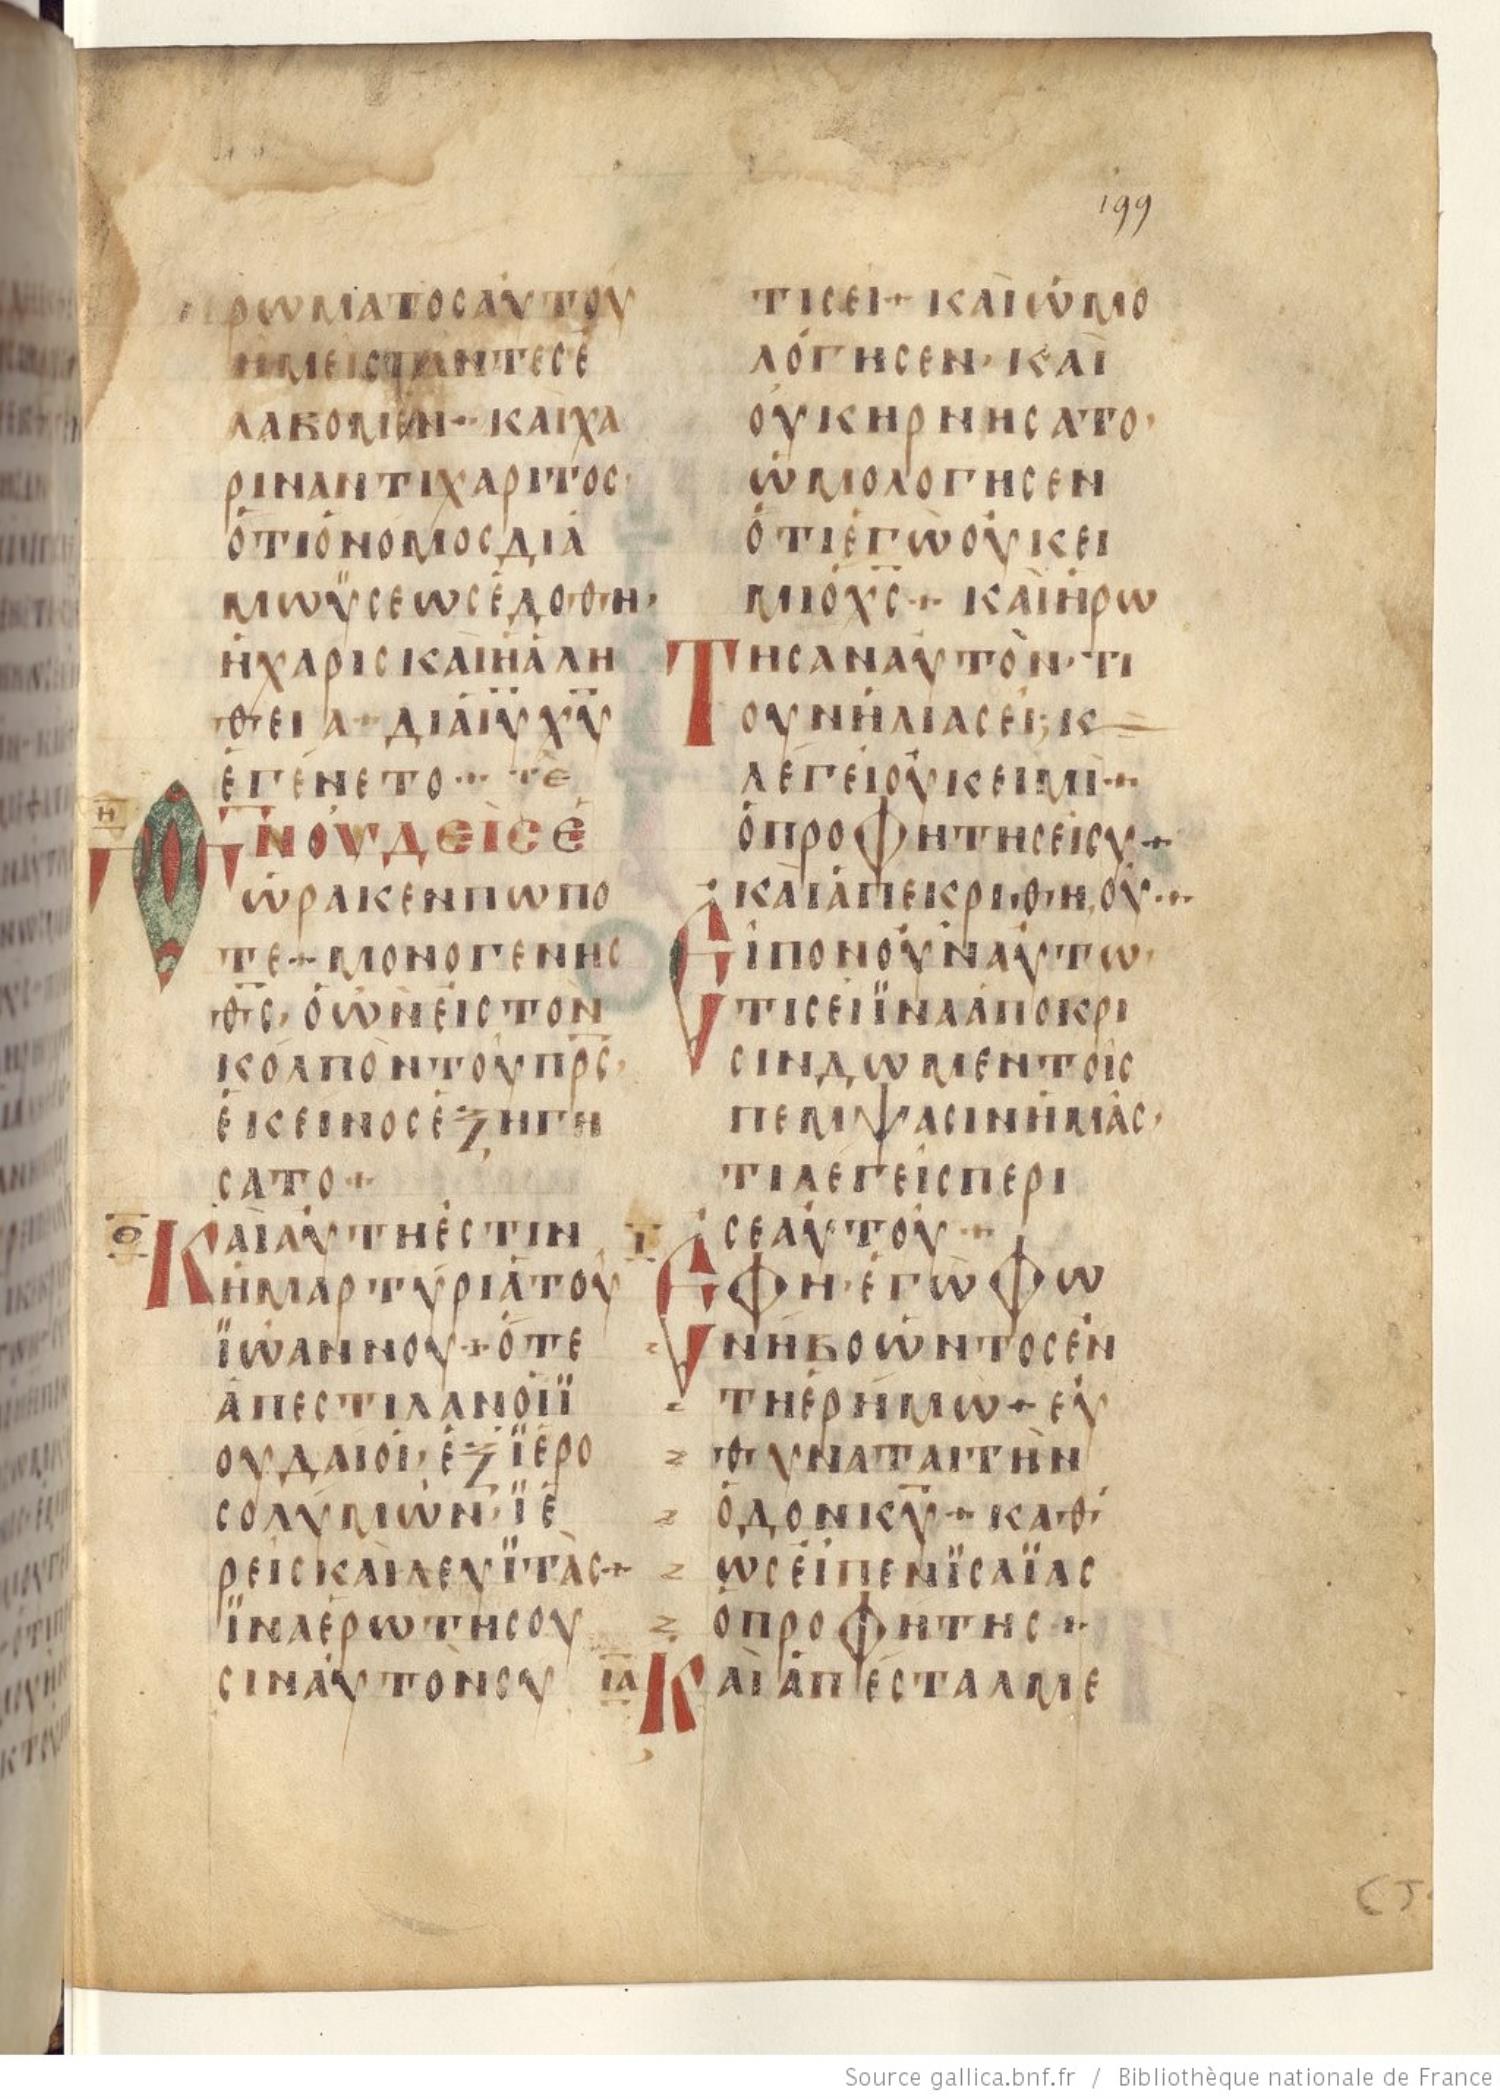 199
ΡΩΜΑΤΟΣΑΥΤΟΥ
ἩΜΕΙΣΠΑΝΤΕΣΕ
ΛΑΒΟΜΕΝ + ΚΑΙΧΑ
ΡΙΝΑΝΤΙΧΑΡΙΤΟΣ·
ὉΤΙὉΝΟΜΟΣΔΙΑ
ΜΩΫΣΕΩΣΕΔΟΘΗ·
ἩΧΑΡΙΣΚΑΙἩἈΛΗ
ΘΕΙΑ + ΔΙΑΙ̅Υ̅Χ̅Υ̅
ΕΓΕΝΕΤΟ + ΤΕ
Η̅
Θ̅Ν̅ΟΥΔΕΙΣΕ
ΩΡΑΚΕΝΠΩΠΟ
ΤΕ + ΜΟΝΟΓΕΝΗΣ
Θ̅Σ̅· ὉΩΝΕΙΣΤΟΝ
ΚΟΛΠΟΝΤΟΥΠ̅Ρ̅Σ̅·
ΕΚΕΙΝΟΣΕΞΗΓΗ
ΣΑΤΟ +
Θ̅
ΚΑΙΑΥΤΗΕΣΤΙΝ
ἩΜΑΡΤΥΡΙΑΤΟΥ
ΪΩΑΝΝΟΥ + ὉΤΕ
ΑΠΕΣΤΙΛΑΝΟΙΪ
ΟΥΔΑΙΟΙ· ΕΞΪΕΡΟ
ΣΟΛΥΜΩΝ· ΪΕ
ΡΕΙΣΚΑΙΛΕΥΪΤΑΣ +
ΪΝΑΕΡΩΤΗΣΟΥ
ΣΙΝΑΥΤΟΝΣΥ
ΤΙΣΕΙ + ΚΑΙΩΜΟ
ΛΟΓΗΣΕΝ· ΚΑΙ
ΟΥΚΗΡΝΗΣΑΤΟ·
ΩΜΟΛΟΓΗΣΕΝ
ὉΤΙΕΓΩΟΥΚΕΙ
ΜΙὉΧ̅Σ̅ + ΚΑΙΗΡΩ
ΤΗΣΑΝΑΥΤΟΝ· ΤΙ
ΟΥΝΗΛΙΑΣΕΙ; Κ
ΛΕΓΕΙΟΥΚΕΙΜΙ +
ὉΠΡΟΦΗΤΗΣΕΙΣΥ +
ΚΑΙΑΠΕΚΡΙΘΗ, ΟΥ +
ΕΙΠΟΝΟΥΝΑΥΤΩ·
ΤΙΣΕΙΪΝΑΑΠΟΚΡΙ
ΣΙΝΔΩΜΕΝΤΟΙΣ
ΠΕΜΨΑΣΙΝΗΜΑΣ·
ΤΙΛΕΓΕΙΣΠΕΡΙ
ΣΕΑΥΤΟΥ +
Ι̅
ΕΦΗ· ΕΓΩΦΩ
ΝΗΒΟΩΝΤΟΣΕΝ
ΤΗΕΡΗΜΩ + ΕΥ
ΘΥΝΑΤΑΙΤΗΝ
ὉΔΟΝΚ̅Υ̅ + ΚΑΘ
ΩΣΕΙΠΕΝΪΣΑΪΑΣ
ὉΠΡΟΦΗΤΗΣ +
Ι̅Α̅
ΚΑΙΑΠΕΣΤΑΛΜΕ
Source gallica.bnf.fr / Bibliothèque nationale de France